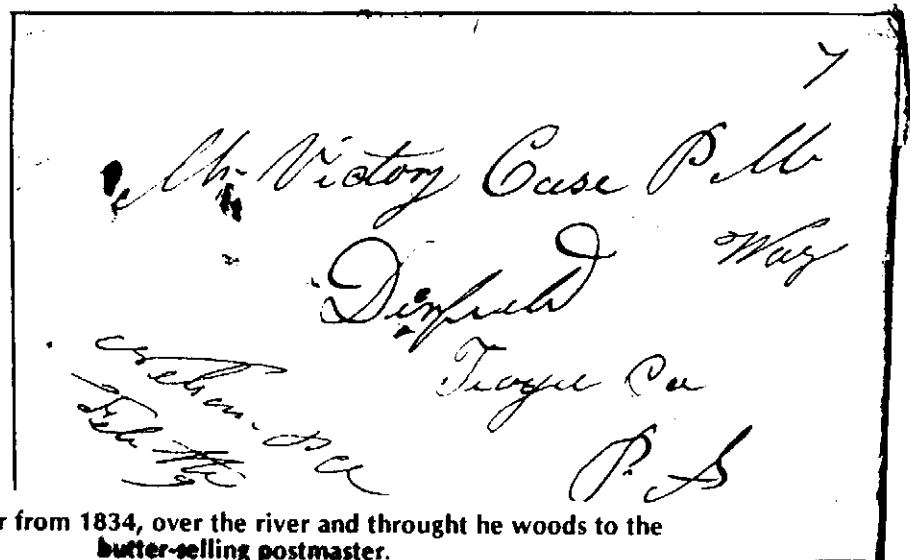 7
Mr Victory Case P M
Way
Deerfield
Tioga Co
Pa
Nelson Pa
Feb
r from 1834, over the river and throught he woods to the
butter-selling postmaster.